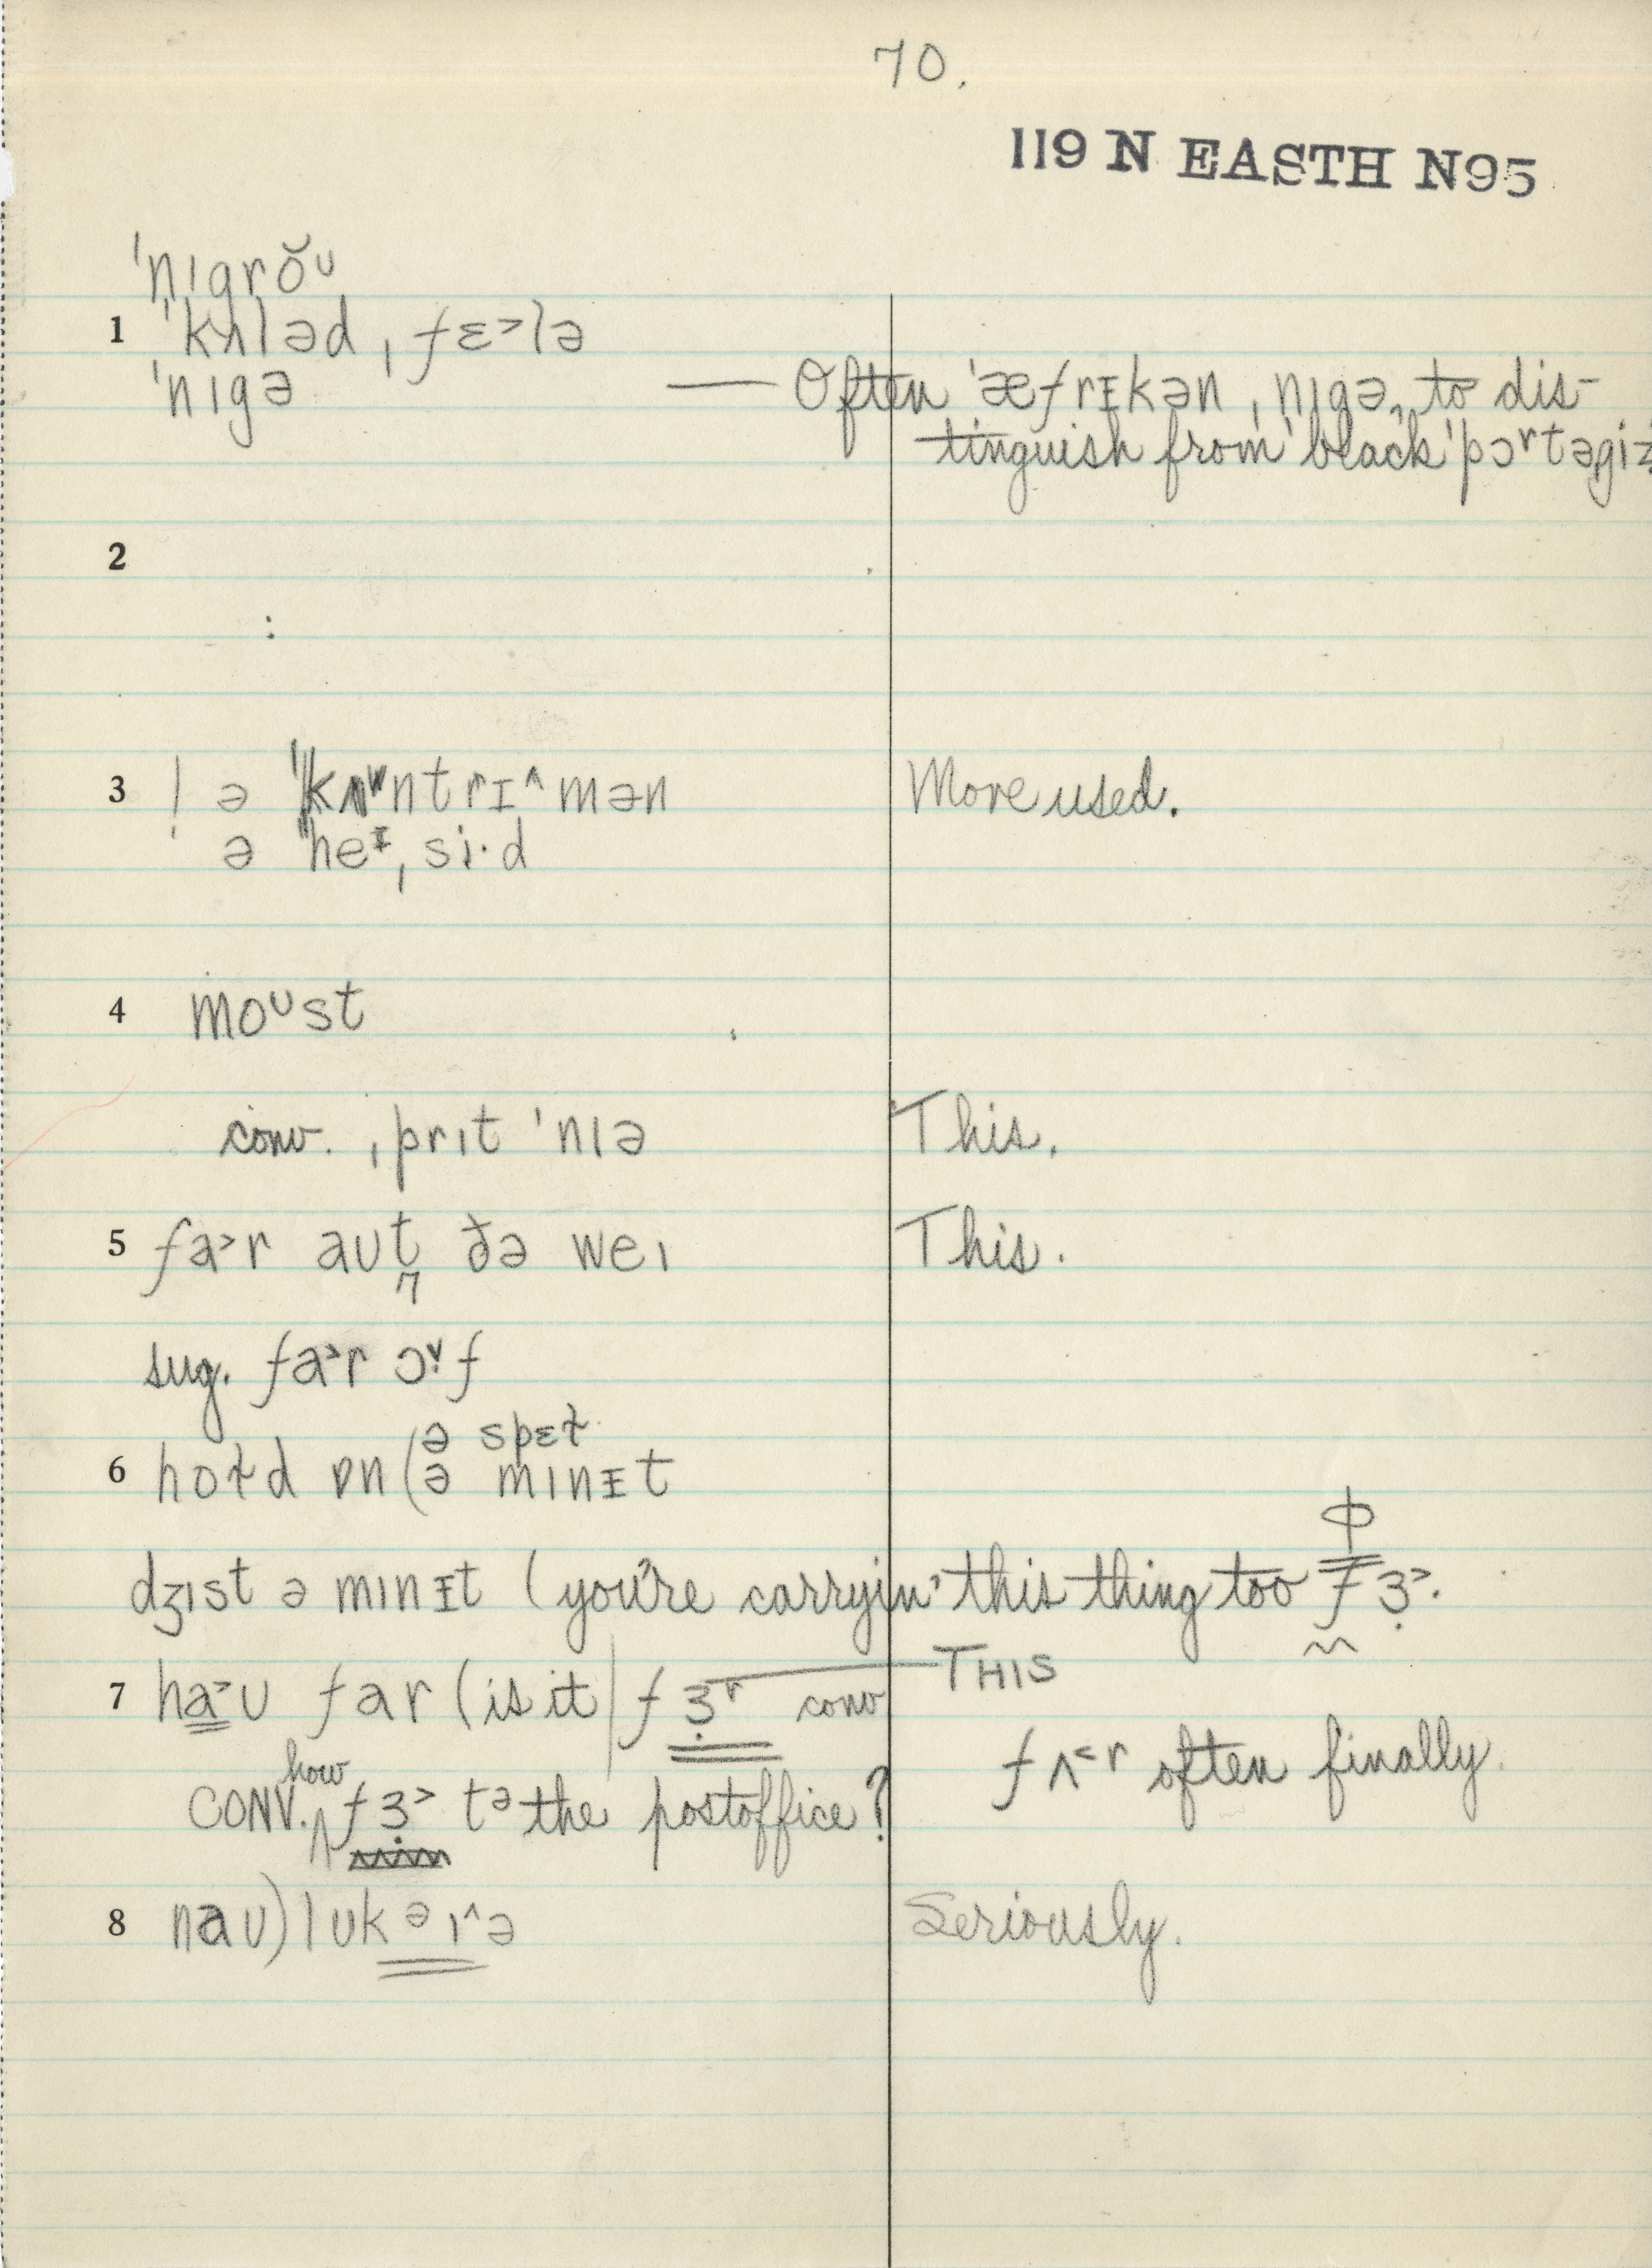 70.
119 N EASTH N95
ˈnɪgrŏᴜ
1 ˈkʌləd ˌfɛ˃lə
ˈnɪgə — Often ˈæfrɪkən ˌnɪgə, to dis-
tinguish from ˈblack ˈpɔʳtəgiz
2
:
3 ! ə ˈkʌntrɪ^mən More used.
ə ˈheɪˌsi·d
4 moᴜst
conv. ˌprɪt ˈnɪə This.
5 fa˃r aᴜt ðə weɪ This.
sug. fa˃r ɔ˅f
ə spɛɫ
6 hoɫd ɒn (ə mɪnɪt
ɸ
dʒɪst ə mɪnɪt (you're carryin' this thing too fɜ˃.
7 ha˃ᴜ far (is it | fɜʳ conv — THIS
fʌ˂r often finally.
how
CONV. ^ fɜ˃ tə the postoffice?
8 naᴜ) lᴜk ə ɪ^ə Seriously.